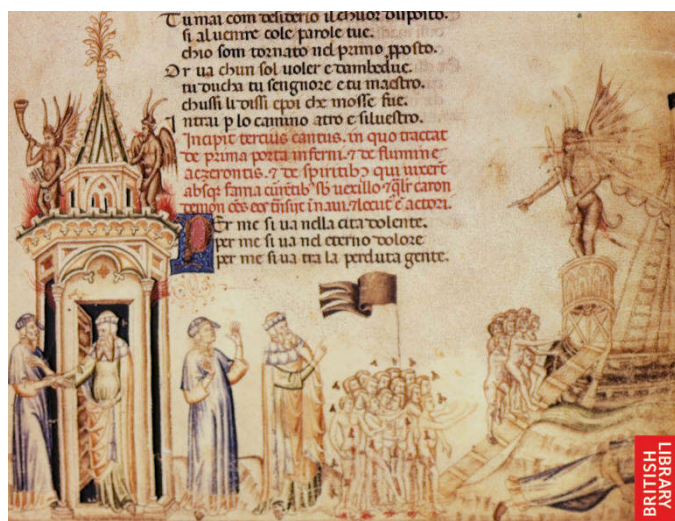 Tu mai com desiderio il chuor disposto.
si al uenire cole parole tue.
chio som tornato nel primo pposto.
Or ua chun sol uoler e dambedue.
tu ducha tu sengnore e tu maestro.
chussi li dissi e poi che mosse fue.
Intrai p lo camino atro e siluestro.
Incipit tercius cantus. in quo tractat
de prima porta inferni. ⁊ de flumine
aczerontis. ⁊ de spiritibꝫ qui uixert
absqꝫ fama sub uexillo caron
demon in naui.
Per me si ua nella cita dolente.
per me si ua nel eterno dolore
per me si ua tra la perduta gente.
BRITISH
LIBRARY